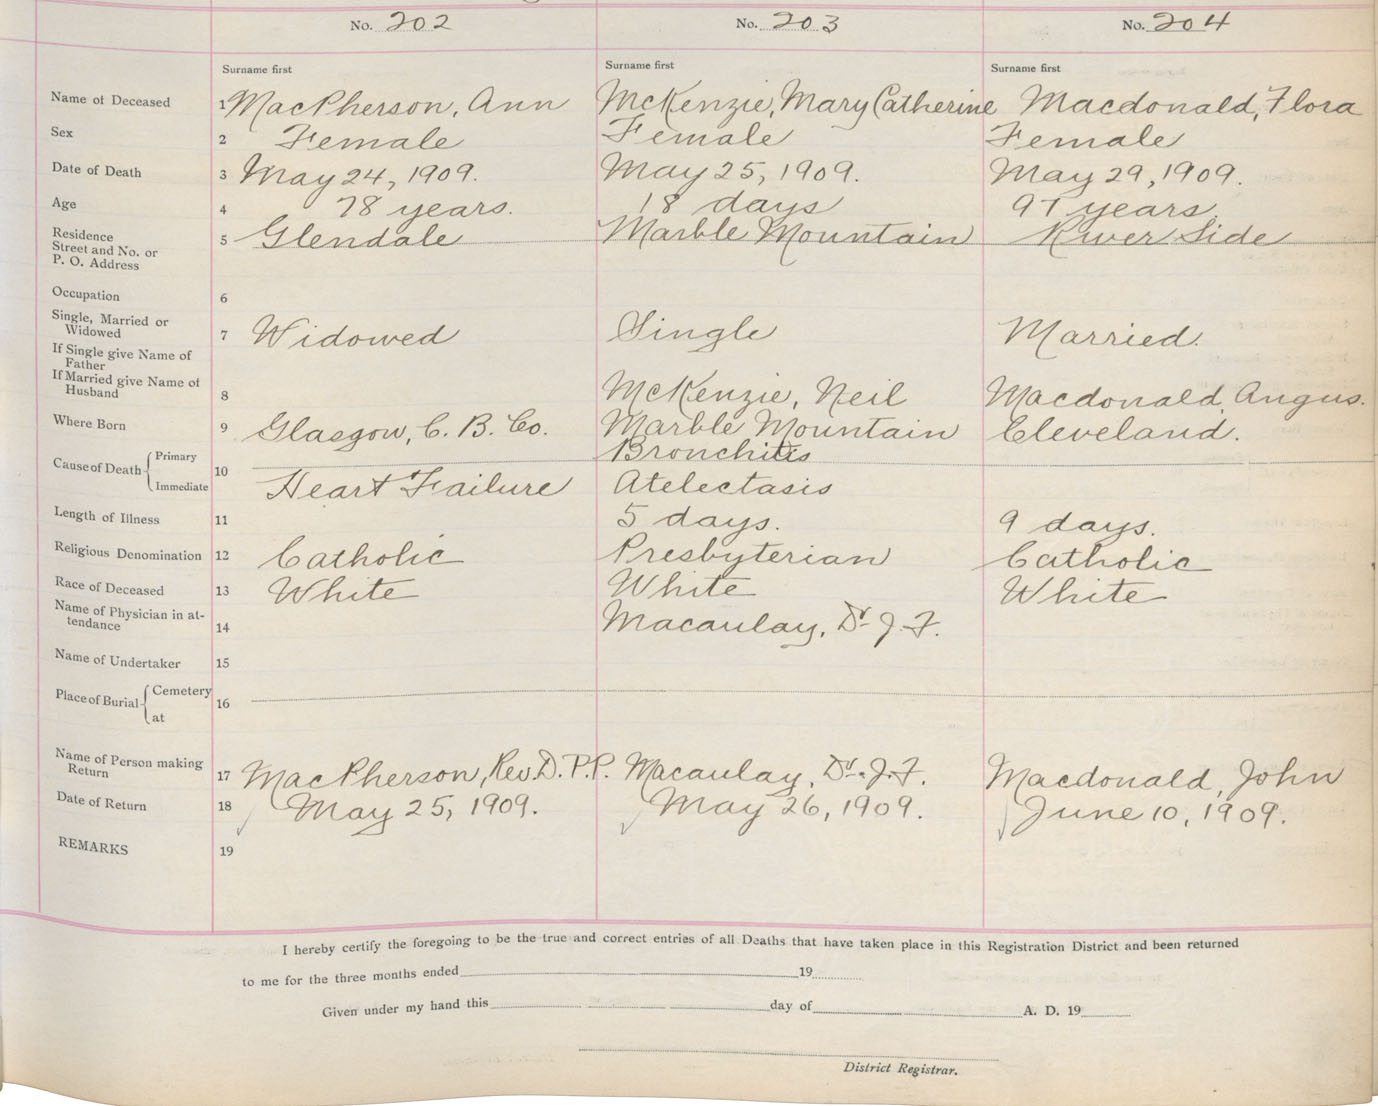 No. 202 No. 203 No. 204
Surname first Surname first Surname first
Name of Deceased 1 MacPherson, Ann McKenzie, Mary Catherine Macdonald, Flora
Sex 2 Female Female Female
Date of Death 3 May 24, 1909. May 25, 1909. May 29, 1909.
Age 4 78 years. 18 days 97 years.
Residence
Street and No. or 5 Glendale Marble Mountain River Side
P. O. Address
Occupation 6
Single, Married or
Widowed 7 Widowed Single Married.
If Single give Name of
Father
If Married give Name of
Husband 8 McKenzie, Neil Macdonald, Angus.
Where Born 9 Glasgow, C. B. Co. Marble Mountain Cleveland.
Cause of Death Primary 10 Bronchitis
Immediate Heart Failure Atelectasis
Length of Illness 11 5 days. 9 days.
Religious Denomination 12 Catholic Presbyterian Catholic
Race of Deceased 13 White White White
Name of Physician in at-
tendance 14 Macaulay, Dr. J. F.
Name of Undertaker 15
Place of Burial Cemetery 16
at
Name of Person making
Return 17 MacPherson, Rev. D. P.P. Macaulay, Dr. J. F. Macdonald, John
Date of Return 18 May 25, 1909. May 26, 1909. June 10, 1909.
REMARKS 19
I hereby certify the foregoing to be the true and correct entries of all Deaths that have taken place in this Registration District and been returned
to me for the three months ended 19
Given under my hand this day of A. D. 19
District Registrar.